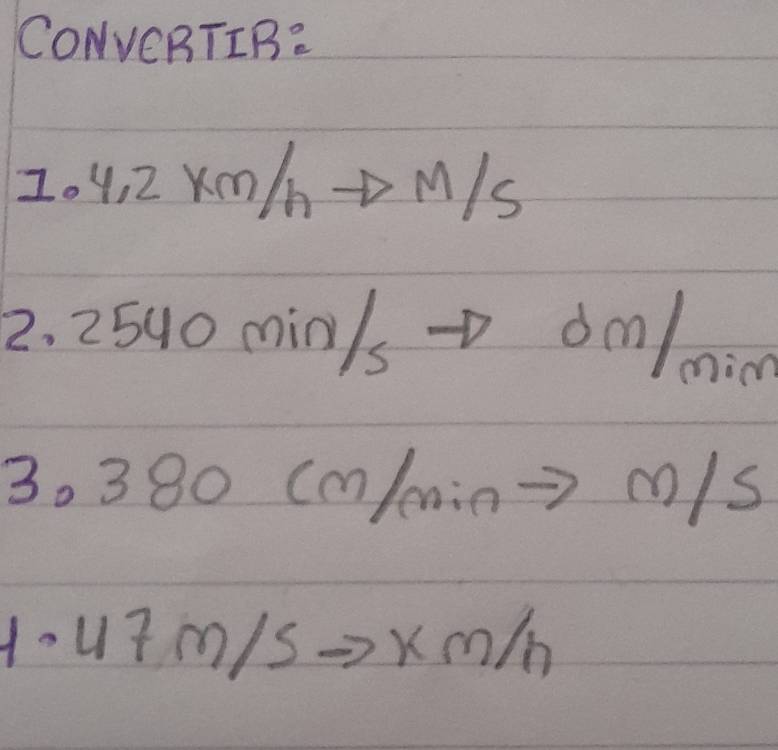 CONVERTIR:
1. 4,2 Km/h → M/S
2. 2540 min/s → dm/mim
3. 380 cm/min → m/s
4. 47 m/s → Km/h